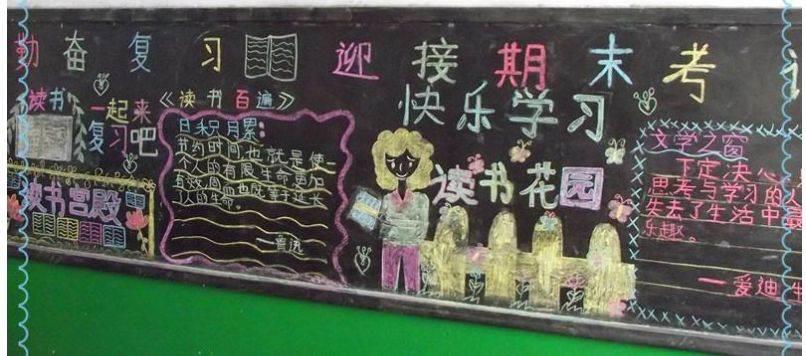 勤奋复习 迎接期末考
读书
一起来
复习吧
读书宫殿
《读书百遍》
日积月累:
节约时间也就是使一
个人的有限生命更加
有效因而也就等于延长
人的生命。
——鲁迅
快乐学习
读书花园
文学之窗
下定决心
思考与学习的人
失去了生活中最
乐趣。
—爱迪生